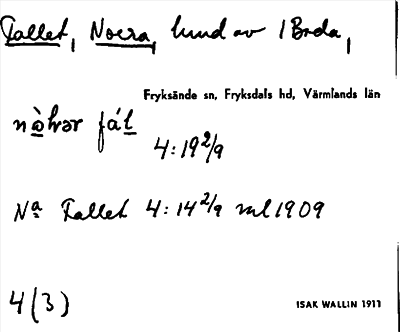 Fallet, Norra, hmd av 1 Breda,
Fryksände sn, Fryksdals hd, Värmlands län
nò̱hrər fál̲
4:19 2/9
Na Fallet 4:14 2/9 ml 1909
4(3)
ISAK WALLIN 1911